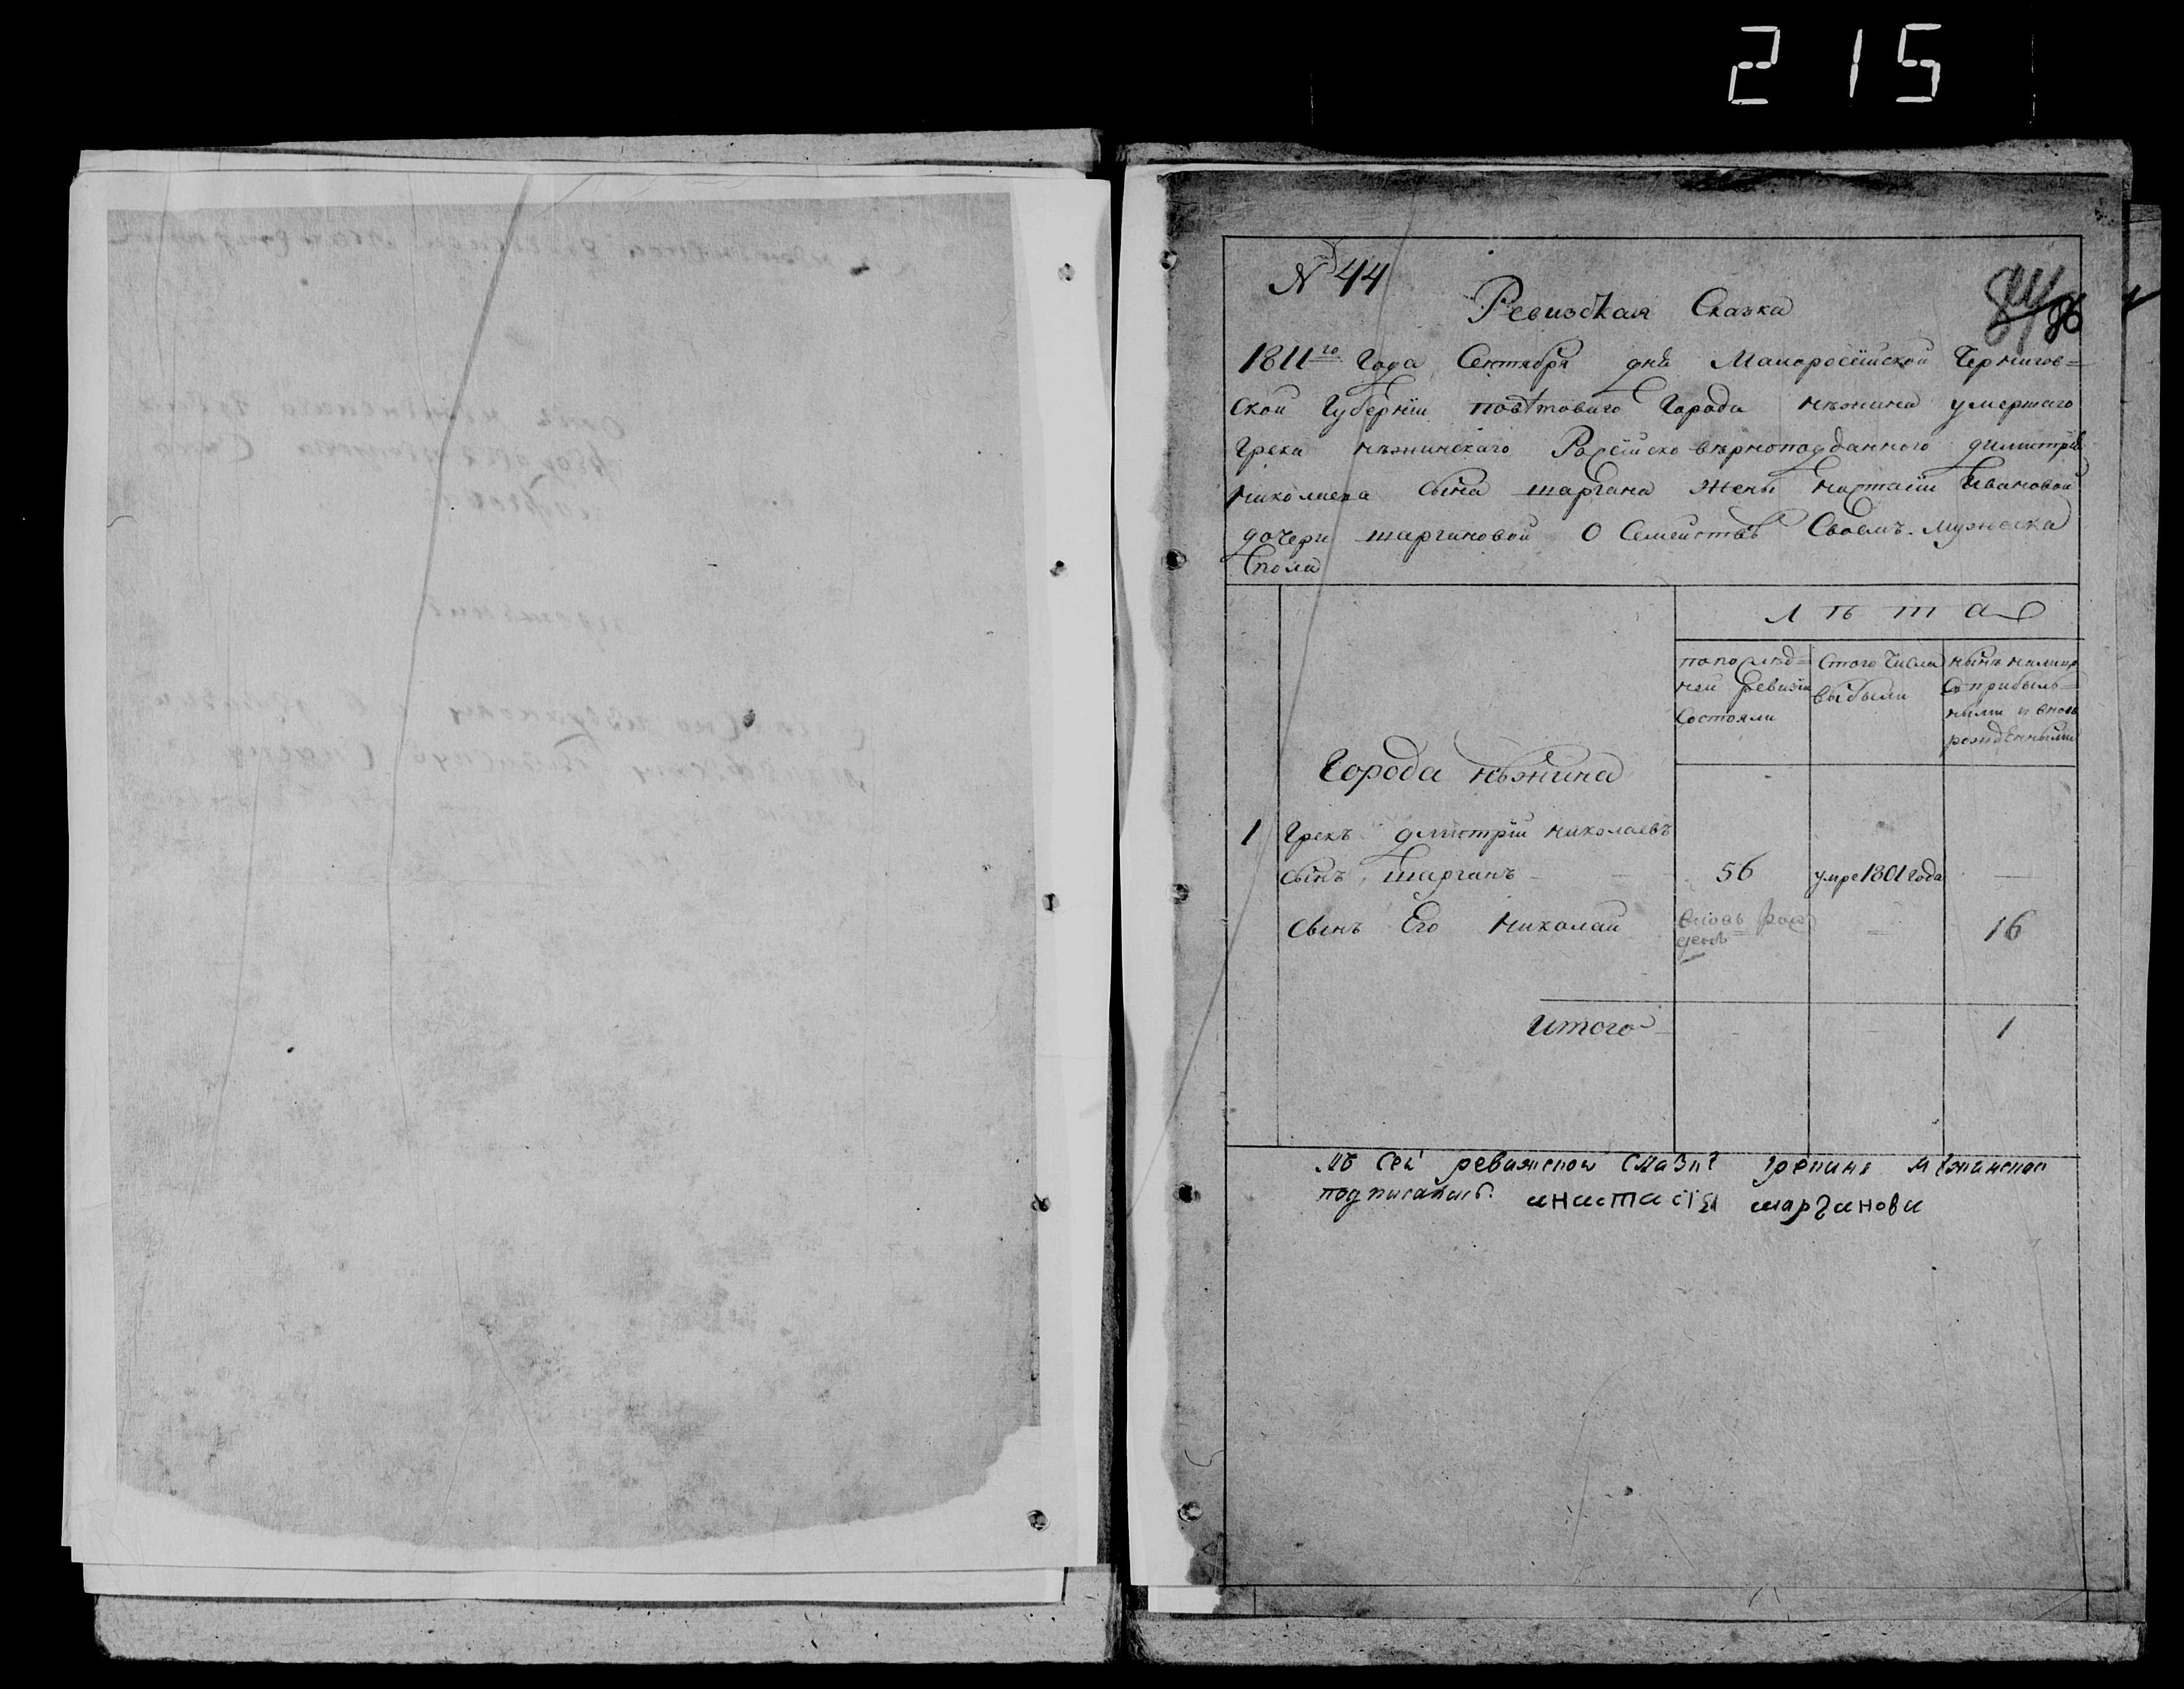 215
№ 44
84
86
Ревизская Сказка
1811го Года Сентября дня Малоросійской Чернигов=
ской Губерніи повѣтового Города Нѣжина умершаго
Грека нѣжинскаго Російско вѣрноподданного димитрія
николаева сына шаргана жены настасіи Ивановой
дочери шаргановой О Семействѣ Своемъ мужеска
пола
Лѣта
по послѣд=
ней ревизіи
Состояли
Стого Числа
выбыли
нынѣ налицо
Съ прибыль=
ними и вновь
рожденными
Города нѣжина
1 Грекъ дмитрій николаевъ
сынъ шарганъ 56 умре 1801 года —
сынъ Его николай вновь рож
денъ — 16
Итого - - 1
къ сей ревижской сказки грекиня нѣжинская
подписалась анастасія шарганова